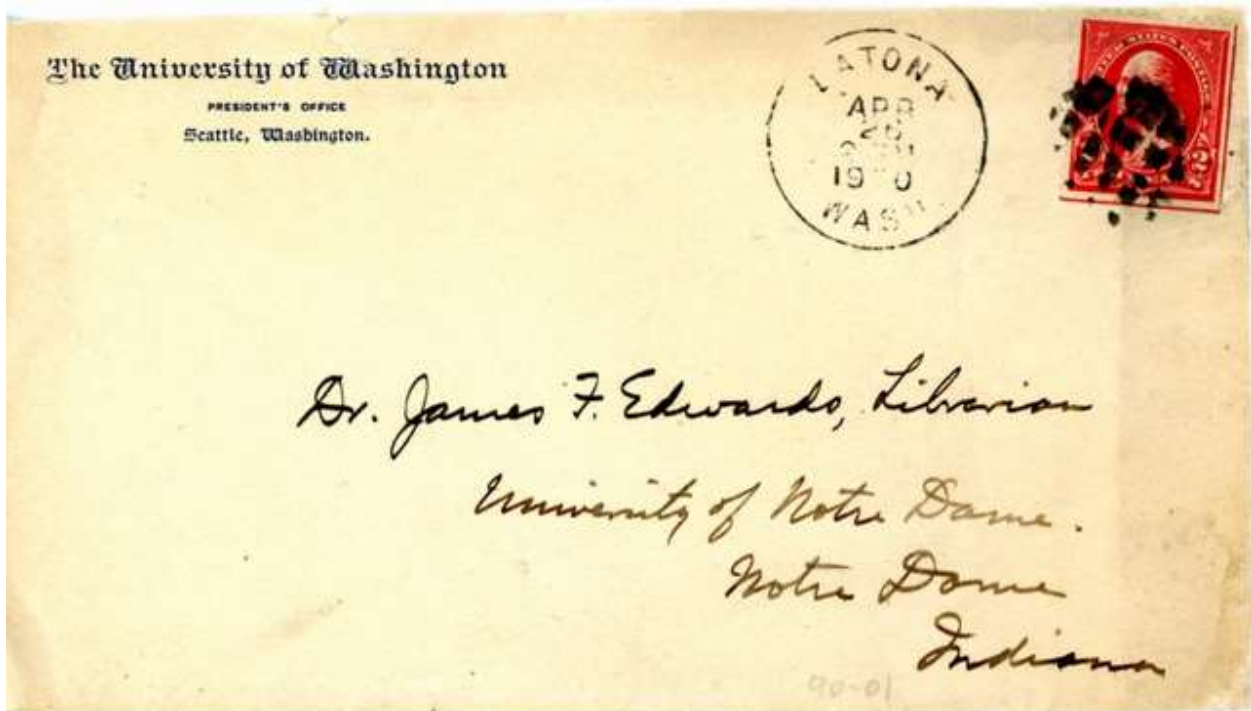 The University of Washington
PRESIDENT'S OFFICE
Seattle, Washington.
LATONA
APR
1900
WASH.
UNITED STATES POSTAGE
2
Dr. James F. Edwards, Librarian
University of Notre Dame.
Notre Dame
Indiana
90-01